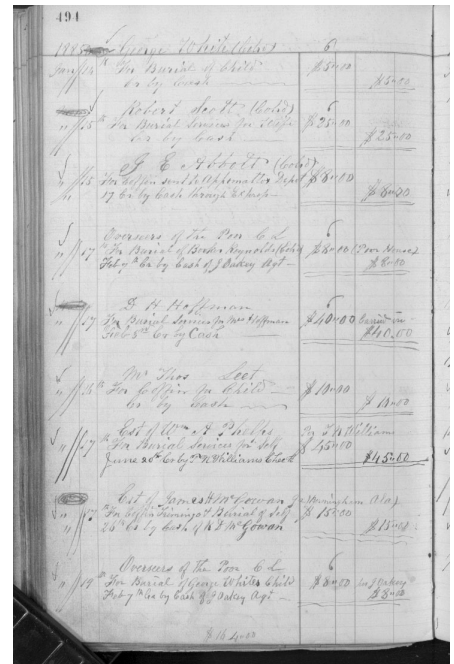 494
1885 George White (Cold) 6
Jany 14th For Burial of Child $5.00
Cr by Cash $5.00
Robert Scott (Cold) 6
" 15th For Burial Services for Wife $25.00
Cr by Cash $25.00
G E Abbott (Cold)
" 15 For Coffin send to Appomattox Depot $8.00
17 Cr by Cash through Express $8.00
Overseers of the Poor C L 6
" 17th For Burial of Booker Reynolds (Cold) $8.00 (Poor House)
Feby 7th Cr by Cash of J Oakey Agt $8.00
G H Hoffman 6
" 17 For Burial Services for Mrs Hoffman $40.00
Feb 5th Cr by Cash $40.00
Mr Thos Leet
" 16th For Coffin for Child $10.00
Cr by Cash $10.00
Est of Wm A Phelps Pr T N Williams
" 17th For Burial Services for Self $45.00
June 20th Cr by T N Williams Check $45.00
Est of James H McGowan (Birmingham Ala)
" 17th For Coffin Trimings & Burial of Self $15.00
" 26th Cr by Cash of K D McGowan $15.00
Overseers of the Poor C L 6
" 19th For Burial of George Whites Child $8.00 J Oakey
Feby 7th Cr by Cash of J Oakey Agt $8.00
$164.00